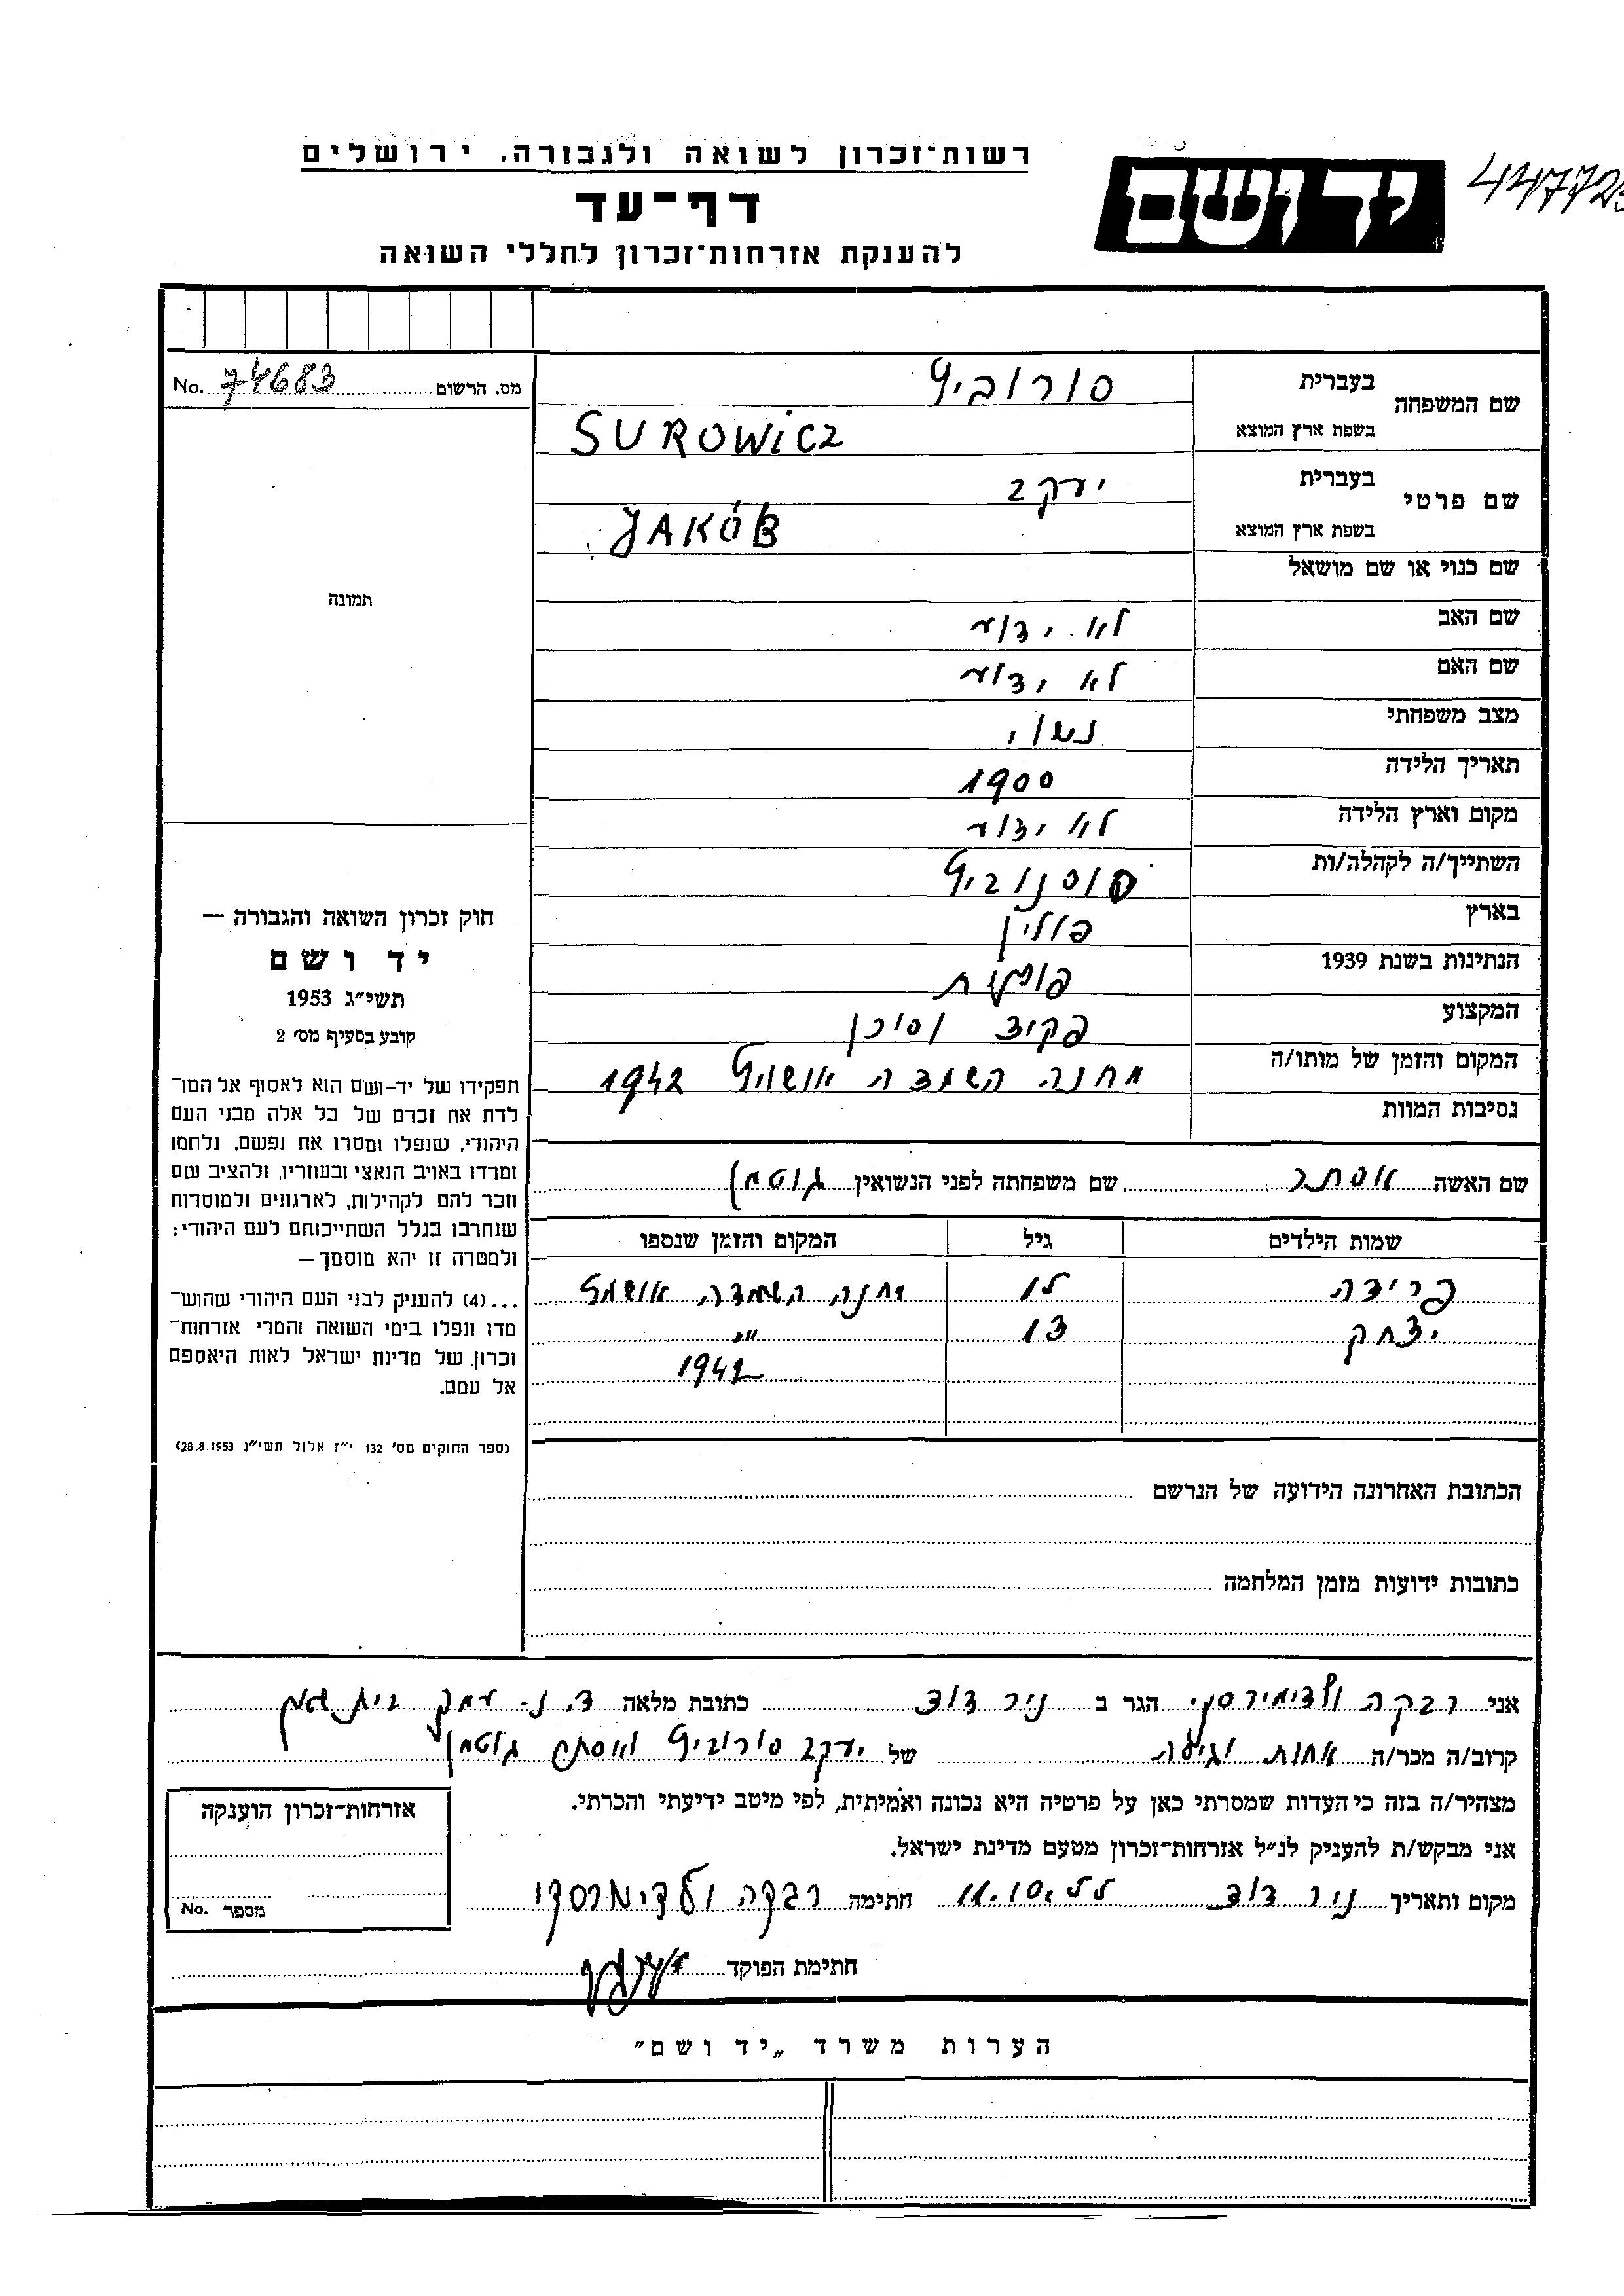 רשות־זכרון לשואה ולגבורה, ירושלים
דף־עד
להענקת אזרחות־זכרון לחללי השואה
יד ושם
מס. הרשום 74683 No.
שם המשפחה בעברית סורוביץ
בשפת ארץ המוצא SUROWiCZ
שם פרטי בעברית יעקב
בשפת ארץ המוצא JAKÓB
שם כנוי או שם מושאל
שם האב לא ידוע
שם האם לא ידוע
מצב משפחתי נשוי
תאריך הלידה 1900
מקום וארץ הלידה לא ידוע
השתייך/ה לקהלה/ות סוסנוביץ
בארץ פולין
הנתינות בשנת 1939 פולנית
המקצוע פקיד וסוכן
המקום והזמן של מותו/ה מחנה השמדה אושויץ 1942
נסיבות המוות
תמונה
חוק זכרון השואה והגבורה —
יד ושם
תשי״ג 1953
קובע בסעיף מס׳ 2
תפקידו של יד-ושם הוא לאסוף אל המו־
לדת את זכרם של כל אלה מבני העם
היהודי, שנפלו ומסרו את נפשם, נלחמו
ומרדו באויב הנאצי ובעוזריו, ולהציב שם
וזכר להם לקהילות, לארגונים ולמוסדות
שנחרבו בגלל השתייכותם לעם היהודי;
ולמטרה זו יהא מוסמך—
...(4) להעניק לבני העם היהודי שהוש־
מדו ונפלו בימי השואה והמרי אזרחות־
זכרון של מדינת ישראל לאות היאספם
אל עמם.
(ספר החוקים מס׳ 132 י״ז אלול תשי״ג 28.8.1953)
שם האשה אסתר שם משפחתה לפני הנשואין גוטמן
שמות הילדים גיל המקום והזמן שנספו
פרידה 10 מחנה השמדה אושויץ
יצחק 13 "
1942
הכתובת האחרונה הידועה של הנרשם
כתובות ידועות מזמן המלחמה
אני רבקה ולדימירסקי הגר ב ניר דוד כתובת מלאה ד.נ. עמק בית שאן
קרוב/ה מכר/ה אחות וגיסה של יעקב סורוביץ ואסתר גוטמן
מצהיר/ה בזה כי העדות שמסרתי כאן על פרטיה היא נכונה ואמיתית, לפי מיטב ידיעתי והכרתי.
אני מבקש/ת להעניק לנ״ל אזרחות־זכרון מטעם מדינת ישראל.
מקום ותאריך ניר דוד חתימה רבקה ולדימרסקי
חתימת הפוקד
אזרחות־זכרון הוענקה
מספר No.
הערות משרד „יד ושם״